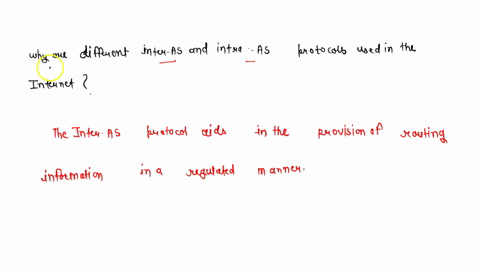 why are different inter-AS and intra-AS protocols used in the
Internet?
The Inter-AS protocol aids in the provision of routing
information in a regulated manner.